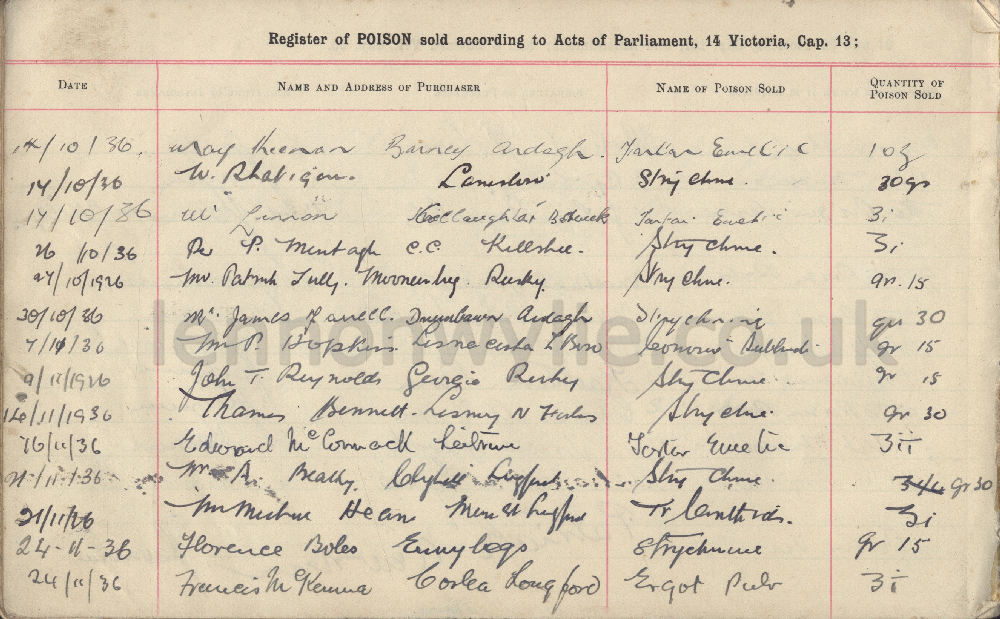 Register of POISON sold according to Acts of Parliament, 14 Victoria, Cap. 13;
DATE NAME AND ADDRESS OF PURCHASER NAME OF POISON SOLD QUANTITY OF POISON SOLD
14/10/36. May Keenan Barney Ardagh. Tartar Emetic 1 oz
14/10/36 W. Rhatigan. Lanesboro Strychne. 30 grs
17/10/36 Tartar Emetic 3i
26/10/36 P. Murtagh C.C. Killashee. Strychne. 3i
27/10/1936 Mr. Patrick Tully. Rusky. Strychne. grs. 15
30/10/36 Mr. James Farrell. Drumbawn Ardagh Strychnine grs 30
7/11/36 Mr P. Hopkins gr 15
9/11/1936 John T. Reynolds Georgia Rusky Strychne gr 15
14/11/1936 Thomas Bennett. N Forbes Strychne. gr 30
16/11/36 Edward McCormack Leitrim Tartar Emetic 3ii
21/11/36 Mr. A. Beatty, Longford Strychne. gr 30
21/11/36 Mr Hearn Main St Longford Tr Canthrids. 3i
24-11-36 Florence Boles Ennybegs Strychnine gr 15
24/11/36 Francis McKenna Corlea Longford Ergot Pulv 3i
lennonwylie.co.uk